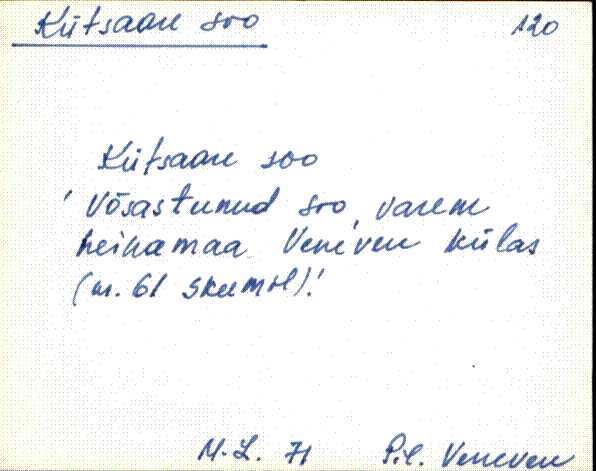 Kütsaare soo 120
Kütsaare soo
'Võsastunud soo, varem
heinamaa Venevere külas
(nr. 61 skeemil).'
M.L. 71 Pil. Venevere